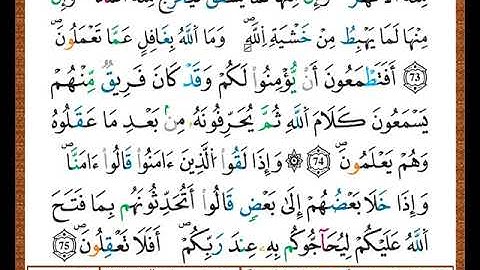 مِنْهَا لَمَا يَهْبِطُ مِنْ خَشْيَةِ اللَّهِ ۗ وَمَا اللَّهُ بِغَافِلٍ عَمَّا تَعْمَلُونَ
73 أَفَتَطْمَعُونَ أَنْ يُؤْمِنُوا لَكُمْ وَقَدْ كَانَ فَرِيقٌ مِّنْهُمْ
يَسْمَعُونَ كَلَامَ اللَّهِ ثُمَّ يُحَرِّفُونَهُ مِنْ بَعْدِ مَا عَقَلُوهُ
وَهُمْ يَعْلَمُونَ 74 ۞ وَإِذَا لَقُوا الَّذِينَ ءَامَنُوا قَالُوا ءَامَنَّا
وَإِذَا خَلَا بَعْضُهُمْ إِلَىٰ بَعْضٍ قَالُوا أَتُحَدِّثُونَهُم بِمَا فَتَحَ
اللَّهُ عَلَيْكُمْ لِيُحَآجُّوكُم بِهِ عِندَ رَبِّكُمْ ۗ أَفَلَا تَعْقِلُونَ 75